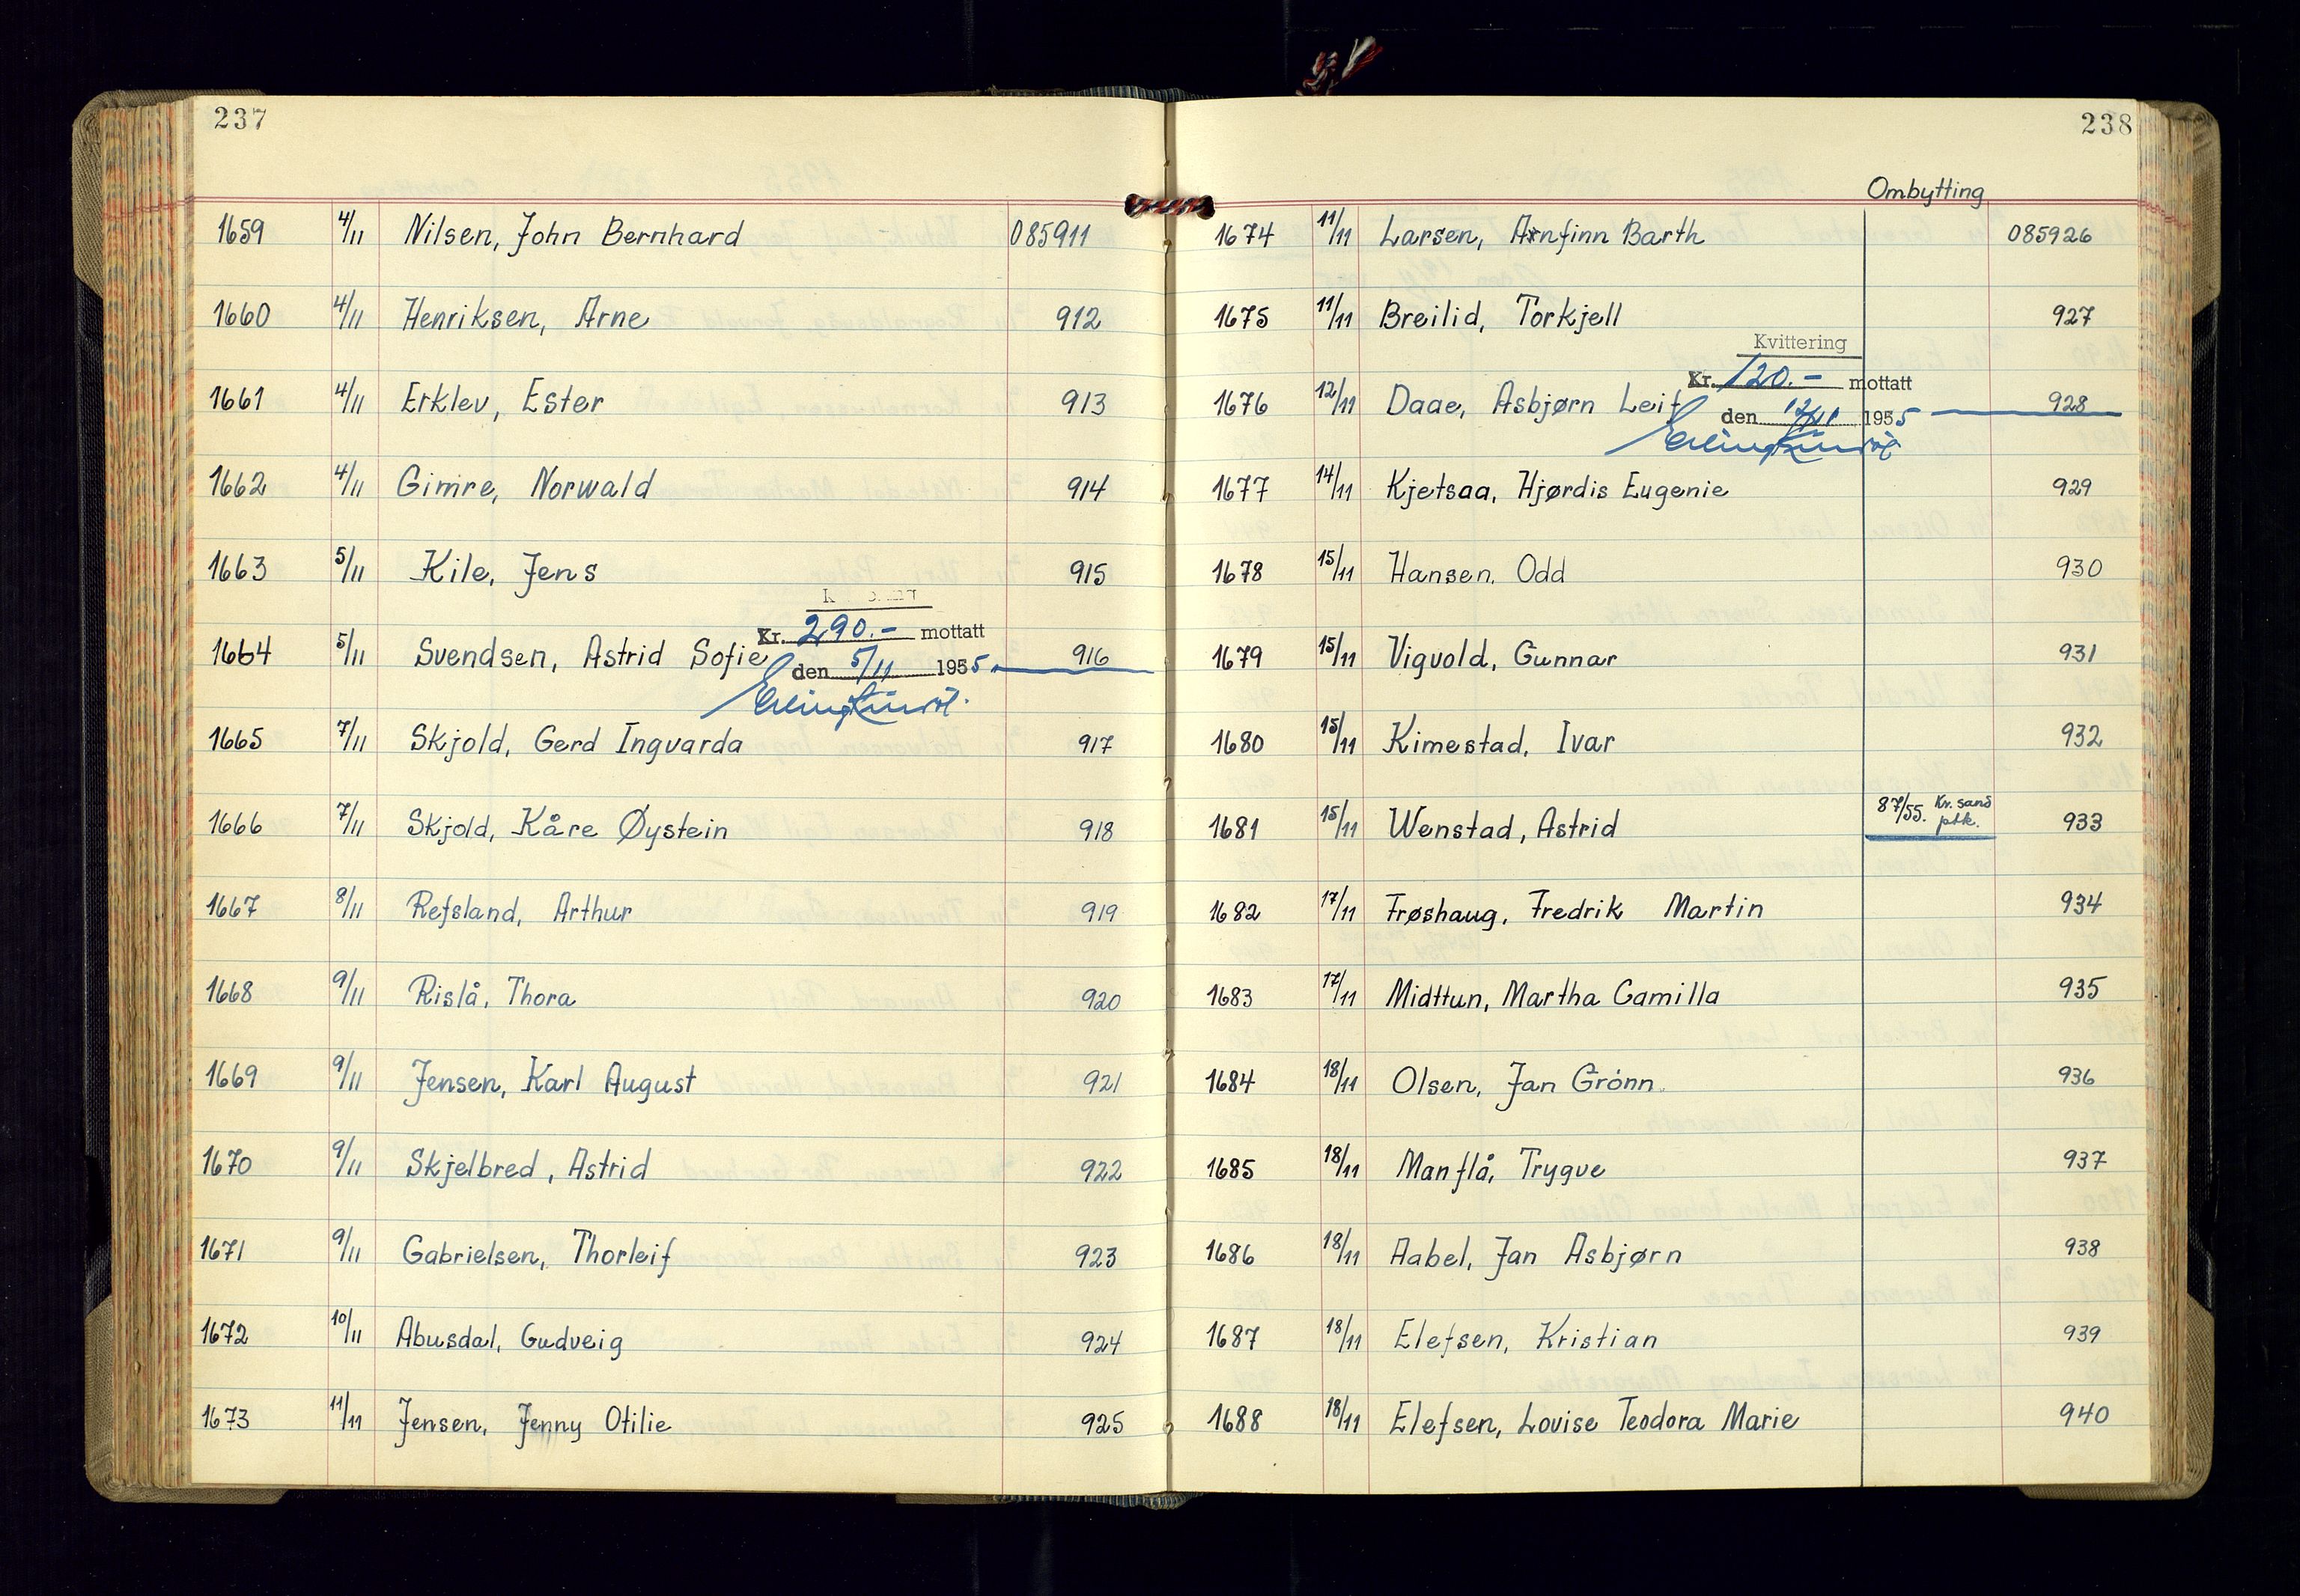 237
1659 4/11 Nilsen, John Bernhard 085911
1660 4/11 Henriksen, Arne 912
1661 4/11 Erklev, Ester 913
1662 4/11 Gimre, Norwald 914
1663 5/11 Kile, Jens 915
Kr. 290.- mottatt
1664 5/11 Svendsen, Astrid Sofie den 5/11 1955 916
1665 7/11 Skjold, Gerd Ingvarda 917
1666 7/11 Skjold, Kåre Øystein 918
1667 8/11 Refsland, Arthur 919
1668 9/11 Rislå, Thora 920
1669 9/11 Jensen, Karl August 921
1670 9/11 Skjelbred, Astrid 922
1671 9/11 Gabrielsen, Thorleif 923
1672 10/11 Abusdal, Gudveig 924
1673 11/11 Jensen, Jenny Otilie 925
238
Ombytting
1674 11/11 Larsen, Arnfinn Barth 085926
1675 11/11 Breilid, Torkjell 927
Kvittering
Kr. 120.- mottatt
1676 12/11 Daae, Asbjørn Leif den 12/11 1955 928
1677 14/11 Kjetsaa, Hjørdis Eugenie 929
1678 15/11 Hansen, Odd 930
1679 15/11 Vigvold, Gunnar 931
1680 15/11 Kimestad, Ivar 932
1681 15/11 Wenstad, Astrid 87/55. Kr.sand ptk. 933
1682 17/11 Frøshaug, Fredrik Martin 934
1683 17/11 Midttun, Martha Camilla 935
1684 18/11 Olsen, Jan Grónn 936
1685 18/11 Manflå, Trygve 937
1686 18/11 Aabel, Jan Asbjørn 938
1687 18/11 Elefsen, Kristian 939
1688 18/11 Elefsen, Lovise Teodora Marie 940